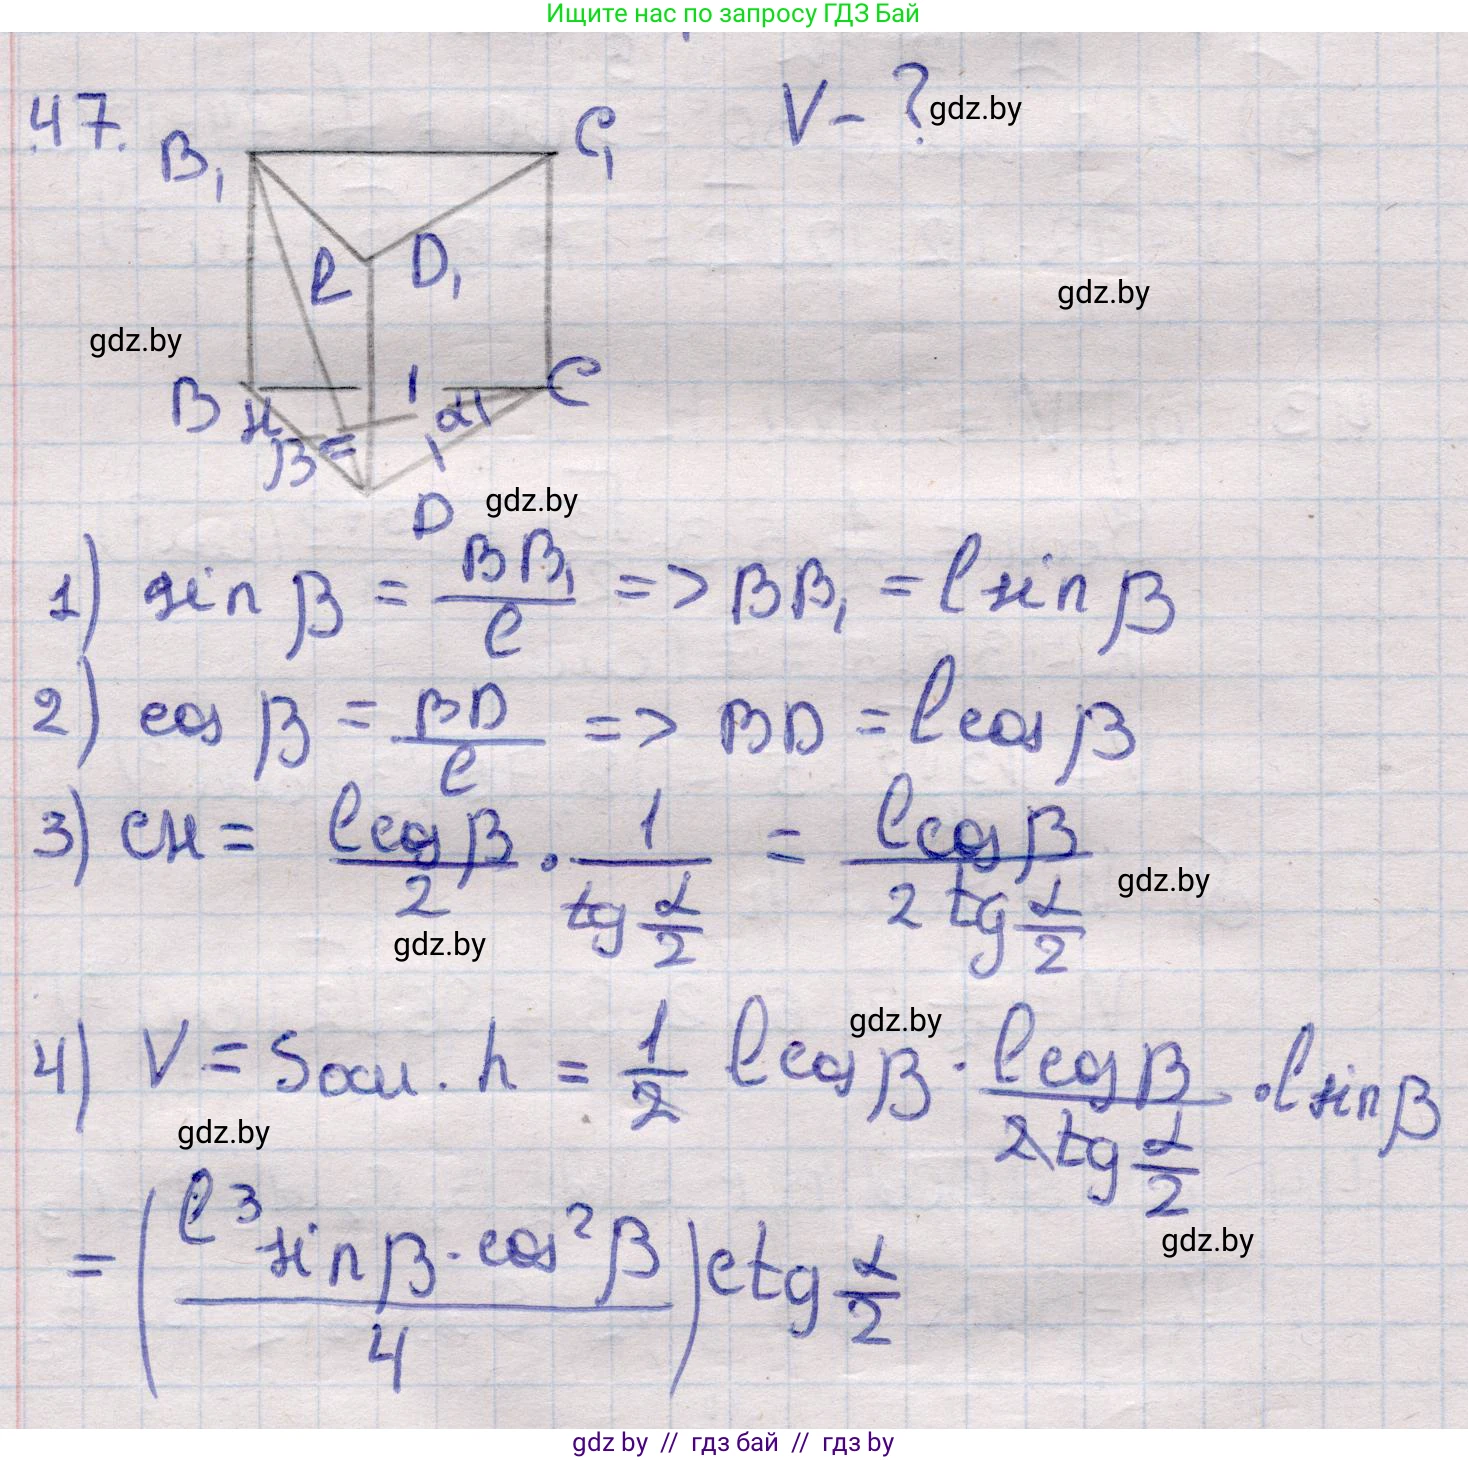 Ищите нас по запросу ГДЗ Бай
47.
V - ?
gdz.by
B₁
C₁
ℓ
D₁
gdz.by
gdz.by
B
H
β
α
C
D
gdz.by
1) sin β = BB₁/ℓ => BB₁ = ℓ sin β
2) cos β = BD/ℓ => BD = ℓ cos β
3) CH = ℓ cos β/2 · 1/tg α/2 = ℓ cos β/2 tg α/2
gdz.by
gdz.by
gdz.by
4) V = Sосн. h = 1/2 ℓ cos β · ℓ cos β/2 tg α/2 · ℓ sin β
gdz.by
gdz.by
= (ℓ³ sin β · cos² β/4) ctg α/2
gdz by // гдз бай // гдз by